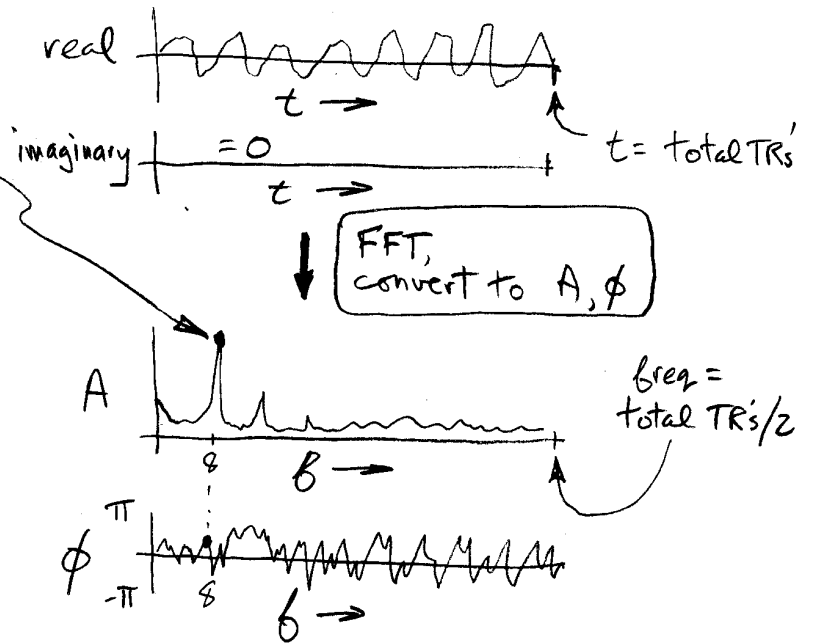 real
t →
t = total TR's
imaginary
= 0
t →
FFT,
convert to A, ϕ
A
freq =
total TR's/2
8
f →
π
ϕ
-π
8
f →